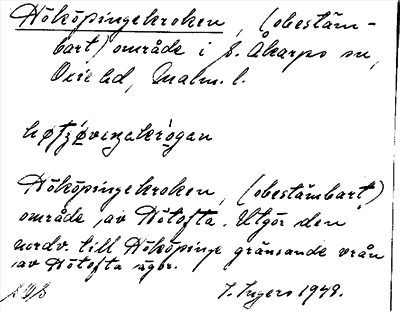 Hököpingekroken, (obestäm-
bart) område i S. Åkarps sn,
Oxie hd, Malm. l.
Hököpingekroken, (obestämbart)
område, av Hötofta. Utgör den
nordv. till Hököpinge gränsande vrån
av Hötofta ägor.
I. Ingers 1948.